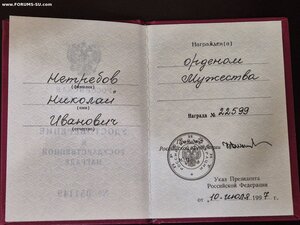 www.FORUMS-SU.com
Нетребов
(фамилия)
Николай
(имя)
Иванович
(отчество)
УДОСТОВЕРЕНИЕ
ГОСУДАРСТВЕННОЙ
НАГРАДЕ
Награжден(а)
орденом
Мужества
Награда № 22599
Президент
Российской Федерации
Указ Президента
Российской Федерации
от „10" июля 1997 г.